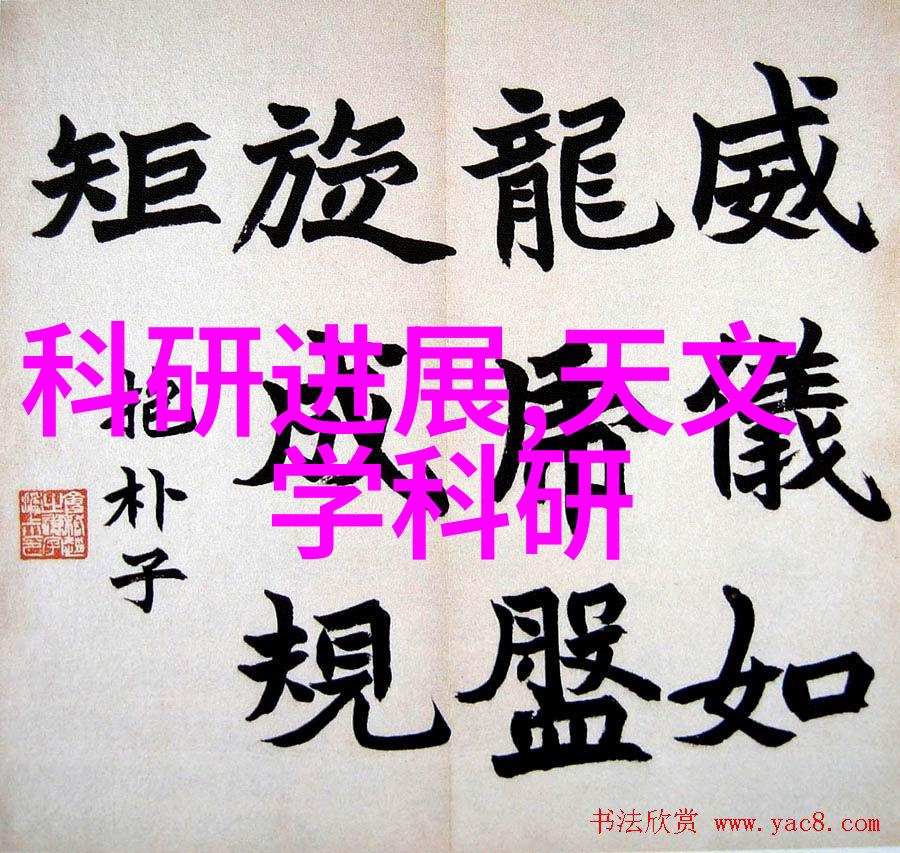 威儀如
龍虎盤
旋成規
矩
抱朴子
科研进展,天文
学科研
书法欣赏 www.yac8.com